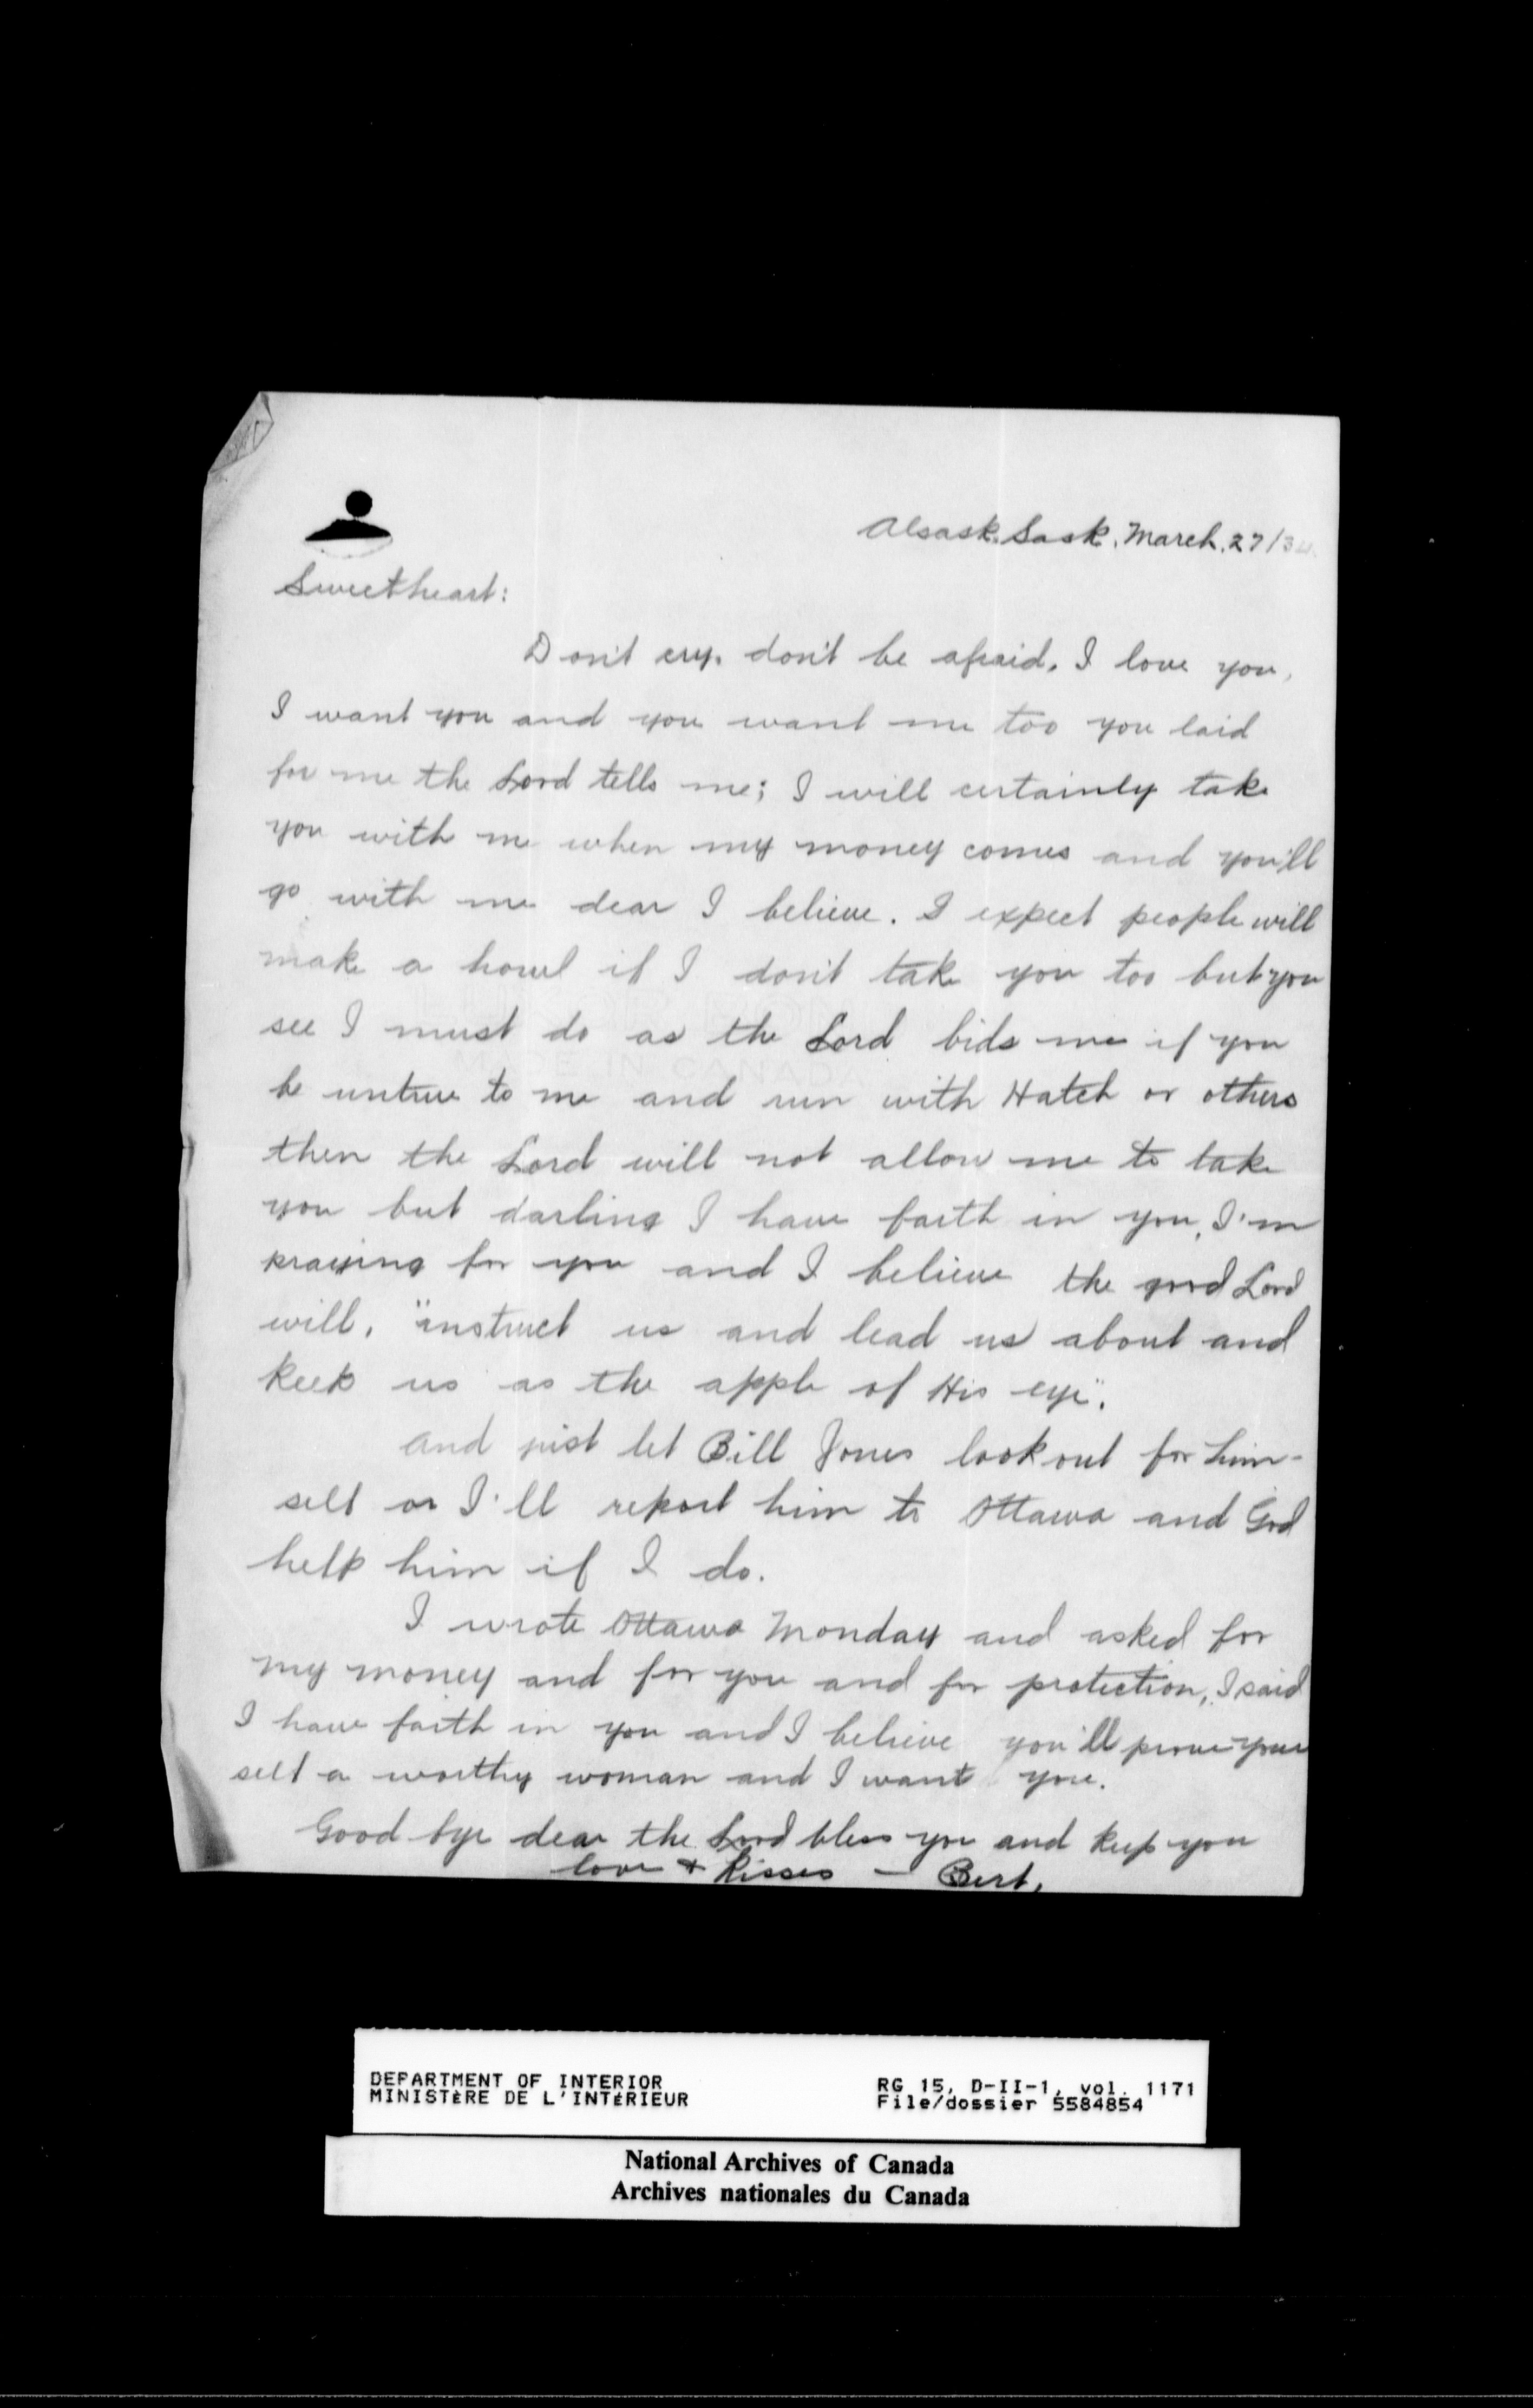 Alsask, Sask, March, 27/34
Sweetheart:
Don't cry, don't be afraid, I love you,
I want you and you want me too you laid
for me the Lord tells me; I will certainly take
you with me when my money comes and you'll
go with me dear I believe. I expect people will
make a howl if I don't take you too but you
see I must do as the Lord bids me if you
be untrue to me and run with Hatch or others
then the Lord will not allow me to take
you but darling I have faith in you, I'm
praying for you and I believe the good Lord
will, "instruct us and lead us about and
keep us as the apple of His eye".
And just let Bill Jones look out for him-
self or I'll report him to Ottawa and God
help him if I do.
I wrote Ottawa Monday and asked for
my money and for you and for protection, I said
I have faith in you and I believe you'll prove your
self a worthy woman and I want you.
Good bye dear the Lord bless you and keep you
love & kisses — Bert.
DEPARTMENT OF INTERIOR
MINISTÈRE DE L'INTÉRIEUR
RG 15, D-II-1, vol. 1171
File/dossier 5584854
National Archives of Canada
Archives nationales du Canada